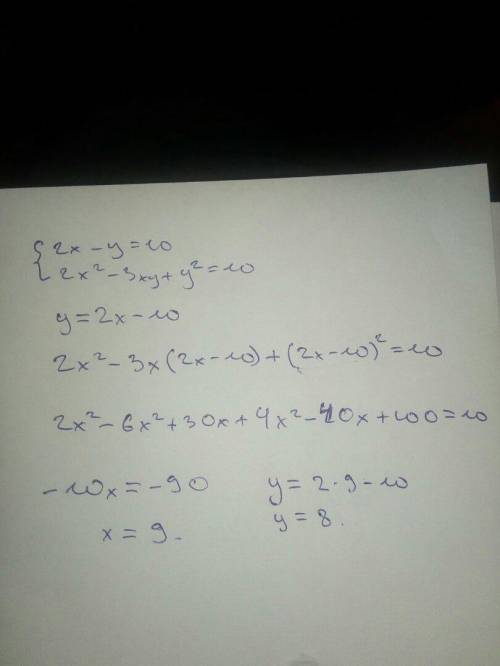 { 2x - y = 10
2x² - 3xy + y² = 10
y = 2x - 10
2x² - 3x(2x - 10) + (2x - 10)² = 10
2x² - 6x² + 30x + 4x² - 40x + 100 = 10
-10x = -90 y = 2·9 - 10
x = 9. y = 8.